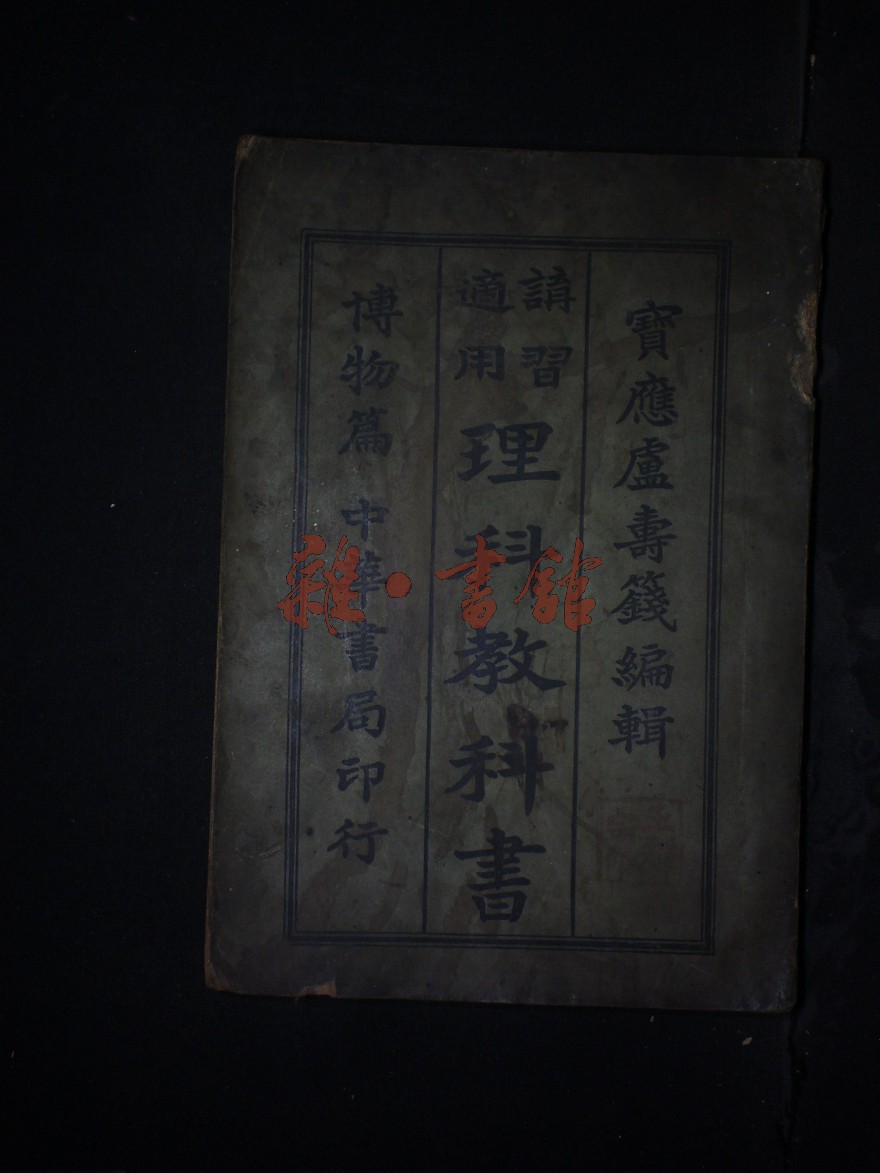 寶應盧壽籛編輯
講習適用
理科教科書
博物篇 中華書局印行
雜·書館